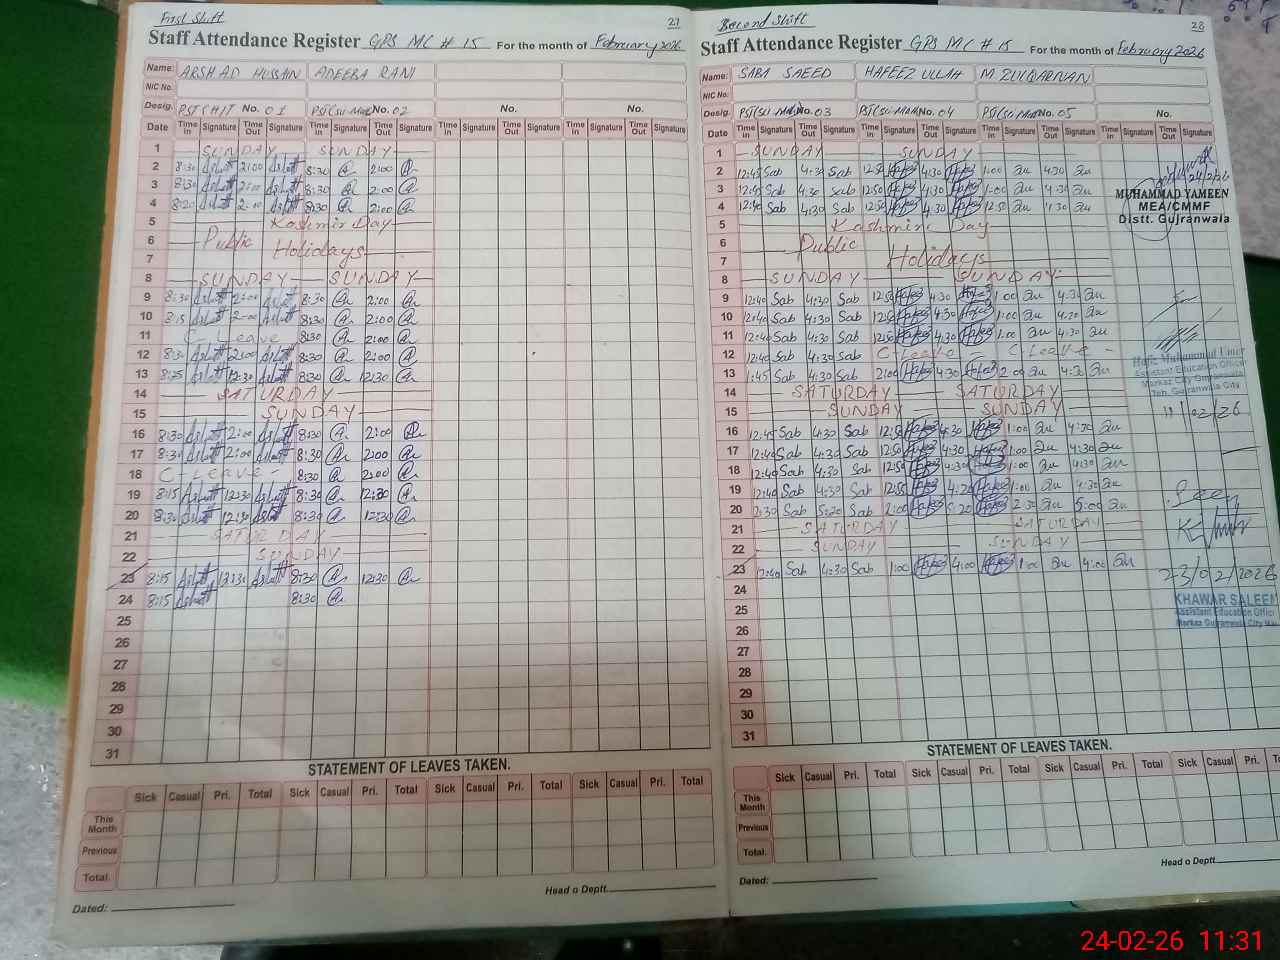 First Shift
27
Staff Attendance Register GPS MC # 15 For the month of February 2026
Name: ARSHAD HUSSAIN ADEEBA RANI
NIC No.
Desig. PST(H)T No. 01 No. 02 No. No.
Date Time In Signature Time Out Signature Time In Signature Time Out Signature Time In Signature Time Out Signature Time In Signature Time Out Signature
1 SUNDAY SUNDAY
2 8:30 2:00 8:30 2:00
3 8:30 2:00 8:30 2:00
4 8:20 2:00 8:30 2:00
5 Kashmir Day
6 Public
7 Holidays
8 SUNDAY SUNDAY
9 8:30 2:00 8:30 2:00
10 8:15 2:00 8:30 2:00
11 C-Leave 8:30 2:00
12 8:30 2:00 8:30 2:00
13 8:25 12:30 8:30 12:30
14 SATURDAY
15 SUNDAY
16 8:30 2:00 8:30 2:00
17 8:30 2:00 8:30 2:00
18 C-Leave - 8:30 2:00
19 8:15 12:30 8:30 12:30
20 8:30 12:30 8:30 12:30
21 SATURDAY
22 SUNDAY
23 8:15 8:30 12:30
24 8:15 8:30
25
26
27
28
29
30
31
STATEMENT OF LEAVES TAKEN.
Sick Casual Pri. Total Sick Casual Pri. Total Sick Casual Pri. Total Sick Casual Pri. Total
This Month
Previous
Total.
Head o Deptt.
Dated:
Second Shift
28
Staff Attendance Register GPS MC # 15 For the month of February 2026
Name: SABA SAEED HAFEEZ ULLAH M. ZULQARNAN
NIC No.
Desig. No. 03 No. 04 No. 05 No.
Date Time In Signature Time Out Signature Time In Signature Time Out Signature Time In Signature Time Out Signature Time In Signature Time Out Signature
1 SUNDAY SUNDAY
2 12:45 Sab 4:30 Sab 12:50 4:30 1:00 4:30
3 12:45 Sab 4:30 Sab 12:50 4:30 1:00 4:30
4 12:40 Sab 4:30 Sab 12:50 4:30 12:50 4:30
24/2/26
MUHAMMAD YAMEEN
MEA/CMMF
Distt. Gujranwala
5 Kashmir Day
6 Public
7 Holidays
8 SUNDAY SUNDAY
9 12:40 Sab 4:30 Sab 12:50 4:30 1:00 4:30
10 12:40 Sab 4:30 Sab 12:50 4:30 1:00 4:30
11 12:40 Sab 4:30 Sab 12:50 4:30 1:00 4:30
12 12:40 Sab 4:30 Sab C-Leave - C-Leave -
13 1:45 Sab 4:30 Sab 2:00 4:30 2:00 4:30
Hafiz Muhammad Umer
Assistant Education Officer
Markaz City Gujranwala
Teh. Gujranwala City
11/02/26
14 SATURDAY SATURDAY
15 SUNDAY SUNDAY
16 12:45 Sab 4:30 Sab 12:50 4:30 1:00 4:30
17 12:40 Sab 4:30 Sab 12:50 4:30 1:00 4:30
18 12:40 Sab 4:30 Sab 12:50 4:30 1:00 4:30
19 12:40 Sab 4:30 Sab 12:50 4:20 1:00 4:30
20 2:30 Sab 5:20 Sab 2:00 5:20 2:30 5:00
Seen
21 SATURDAY SATURDAY
22 SUNDAY SUNDAY
23 12:40 Sab 4:30 Sab 1:00 4:00 1:00 4:00
23/02/2026
KHAWAR SALEEM
Assistant Education Offic
Markaz Gujranwala City
24
25
26
27
28
29
30
31
STATEMENT OF LEAVES TAKEN.
Sick Casual Pri. Total Sick Casual Pri. Total Sick Casual Pri. Total Sick Casual Pri.
This Month
Previous
Total.
Head o Deptt.
Dated:
24-02-26 11:31